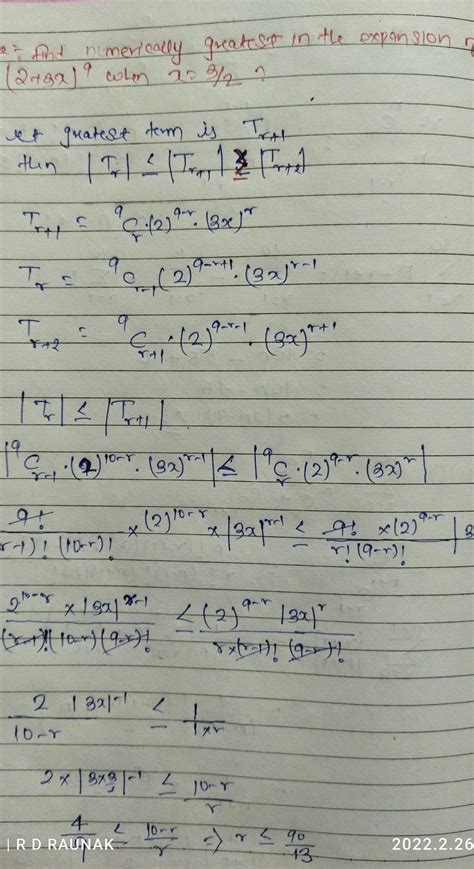 find numerically greatest in the expansion of
(2+3x)^9 when x = 3/2 ?
let greatest term is T_{r+1}
then |T_r| ≤ |T_{r+1}| ≥ |T_{r+2}|
T_{r+1} = ^9C_r · (2)^{9-r} · (3x)^r
T_r = ^9C_{r-1} (2)^{9-r+1} · (3x)^{r-1}
T_{r+2} = ^9C_{r+1} · (2)^{9-r-1} · (3x)^{r+1}
|T_r| ≤ |T_{r+1}|
|^9C_{r-1} · (2)^{10-r} · (3x)^{r-1}| ≤ |^9C_r · (2)^{9-r} · (3x)^r|
9!/(r-1)! (10-r)! × (2)^{10-r} × |3x|^{r-1} ≤ 9! × (2)^{9-r}/r! (9-r)! |3
2^{10-r} × |3x|^{r-1}/(r-1)! (10-r) (9-r)! ≤ (2)^{9-r} |3x|^r/r × (r-1)! (9-r)!
2 |3x|^{-1}/10-r ≤ 1/1×r
2 × |3×3/2|^{-1} ≤ 10-r/r
4/ ≤ 10-r/r ⇒ r ≤ 90/13
| R D RAUNAK
2022.2.26